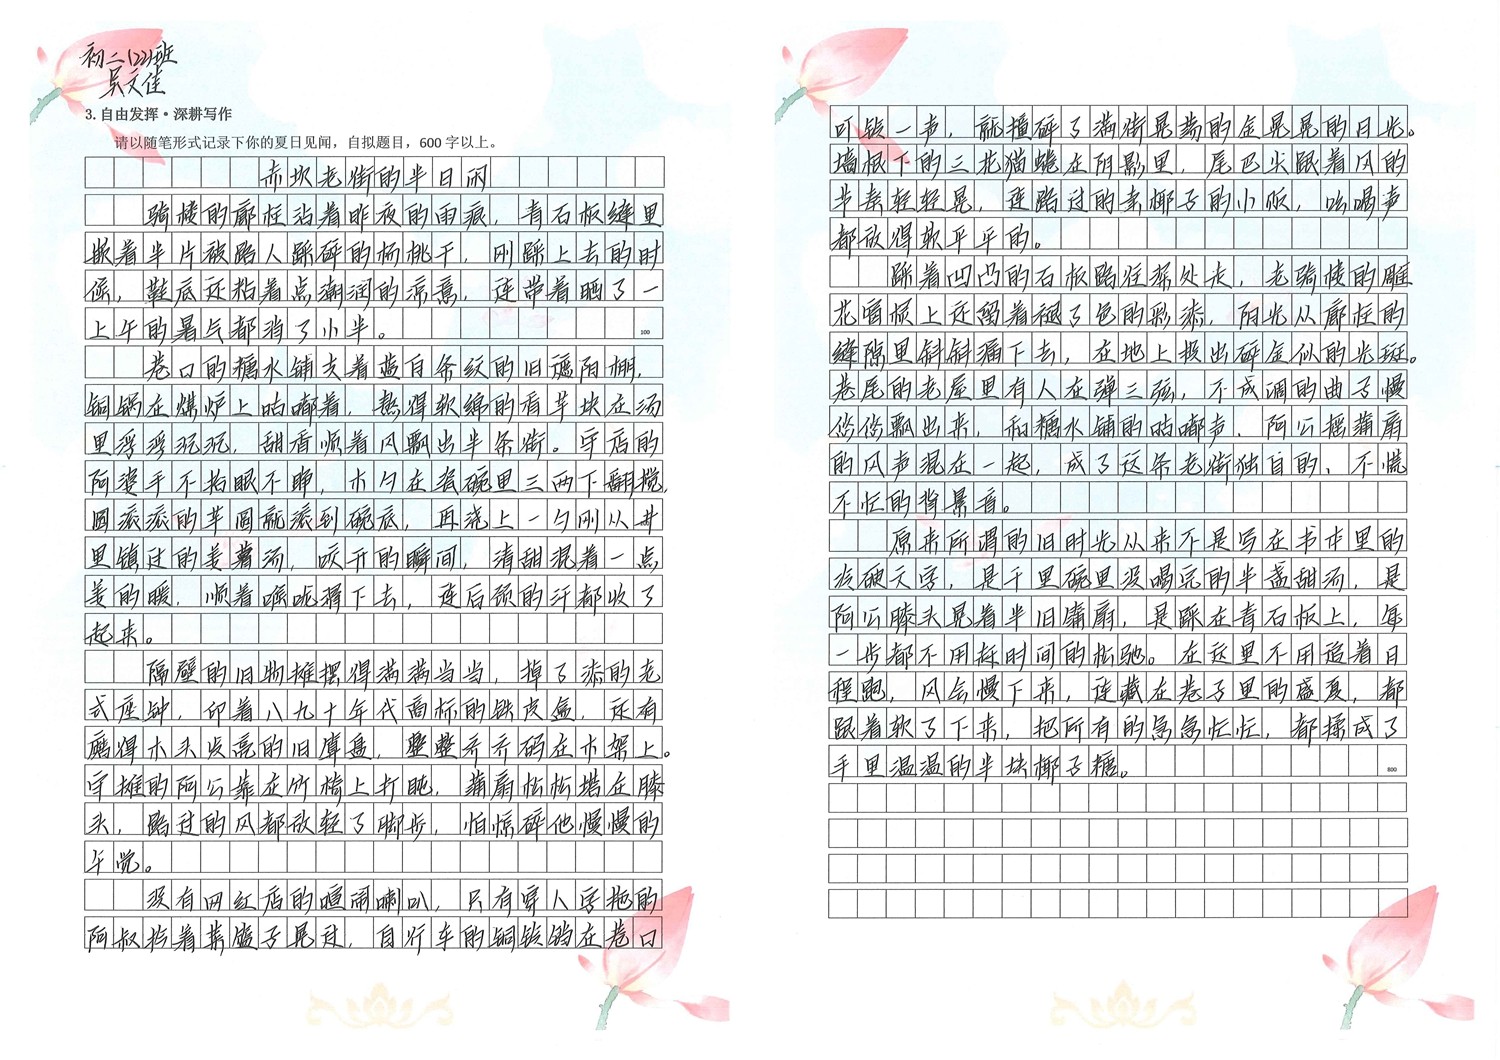 初二(22)班
吴文佳
3. 自由发挥·深耕写作
请以随笔形式记录下你的夏日见闻，自拟题目，600字以上。
赤坎老街的半日闲
骑楼的廊柱沾着昨夜的雨痕，青石板缝里
嵌着半片被路人踩碎的杨桃干，刚踩上去的时
候，鞋底还粘着点潮润的凉意，连带着晒了一
上午的暑气都消了小半。
100
巷口的糖水铺支着蓝白条纹的旧遮阳棚，
铜锅在煤炉上咕嘟着，熬得软绵的香芋块在汤
里浮浮沉沉，甜香顺着风飘出半条街。守店的
阿婆手不抬眼不睁，木勺在瓷碗里三两下翻搅，
圆滚滚的芋圆就滚到碗底，再浇上一勺刚从井
里镇过的姜薯汤，咬开的瞬间，清甜混着一点
姜的暖，顺着喉咙滑下去，连后颈的汗都收了
起来。
隔壁的旧物摊摆得满满当当，掉了漆的老
式座钟，印着八九十年代商标的铁皮盒，还有
磨得木头发亮的旧算盘，整整齐齐码在木架上。
守摊的阿公靠在竹椅上打盹，蒲扇松松搭在膝
头，路过的风都放轻了脚步，怕惊碎他慢慢的
午觉。
没有网红店的喧闹喇叭，只有穿人字拖的
阿叔拎着菜篮子晃过，自行车的铜铃铛在巷口
叮铃一声，就撞碎了满街晃荡的金晃晃的日光。
墙根下的三花猫蜷在阴影里，尾巴尖跟着风的
节奏轻轻晃，连路过的卖椰子的小贩，吆喝声
都放得软乎乎的。
踩着凹凸的石板路往深处走，老骑楼的雕
花窗棂上还留着褪了色的彩漆，阳光从廊柱的
缝隙里斜斜漏下去，在地上投出碎金似的光斑。
巷尾的老屋里有人在弹三弦，不成调的曲子慢
悠悠飘出来，和糖水铺的咕嘟声、阿公摇蒲扇
的风声混在一起，成了这条老街独自的、不慌
不忙的背景音。
原来所谓的旧时光从来不是写在书本里的
冷硬文字，是手里碗里没喝完的半盏甜汤，是
阿公膝头晃着半旧蒲扇，是踩在青石板上，每
一步都不用赶时间的松驰。在这里不用追着日
程跑，风会慢下来，连藏在巷子里的盛夏，都
跟着软了下来，把所有的急急忙忙，都揉成了
手里温温的半块椰子糖。
800